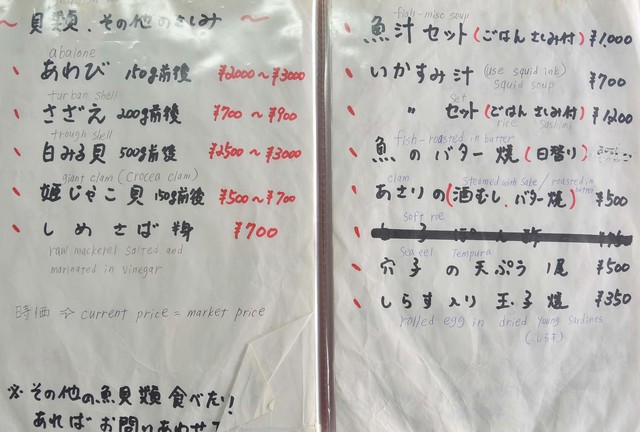 ~ 貝類、その他のさしみ ~
abalone
あわび 150g前後 ¥2000~¥3000
turban shell
さざえ 200g前後 ¥700~¥900
trough shell
白みる貝 500g前後 ¥2500~¥3000
giant clam (crocea clam)
姫じゃこ貝 150g前後 ¥500~¥700
しめさば 半身 ¥700
raw mackerel salted and
marinated in vinegar
時価 ⇨ current price = market price
※ その他の魚貝類食べたい!
あれば お問いあわせ
fish-miso soup
魚汁セット(ごはん さしみ付) ¥1,000
いかすみ汁 (use squid ink) ¥700
squid soup
set
〃 セット(ごはん さしみ付) ¥1200
rice sashimi
fish-roasted in butter
魚のバター焼(日替り)
clam steamed with sake/roasted in butter
あさりの(酒むし、バター焼) ¥500
soft roe
Sea eel Tempura
穴子の天ぷら 1尾 ¥500
しらす入り玉子焼 ¥350
rolled egg in dried young sardines
(しらす)